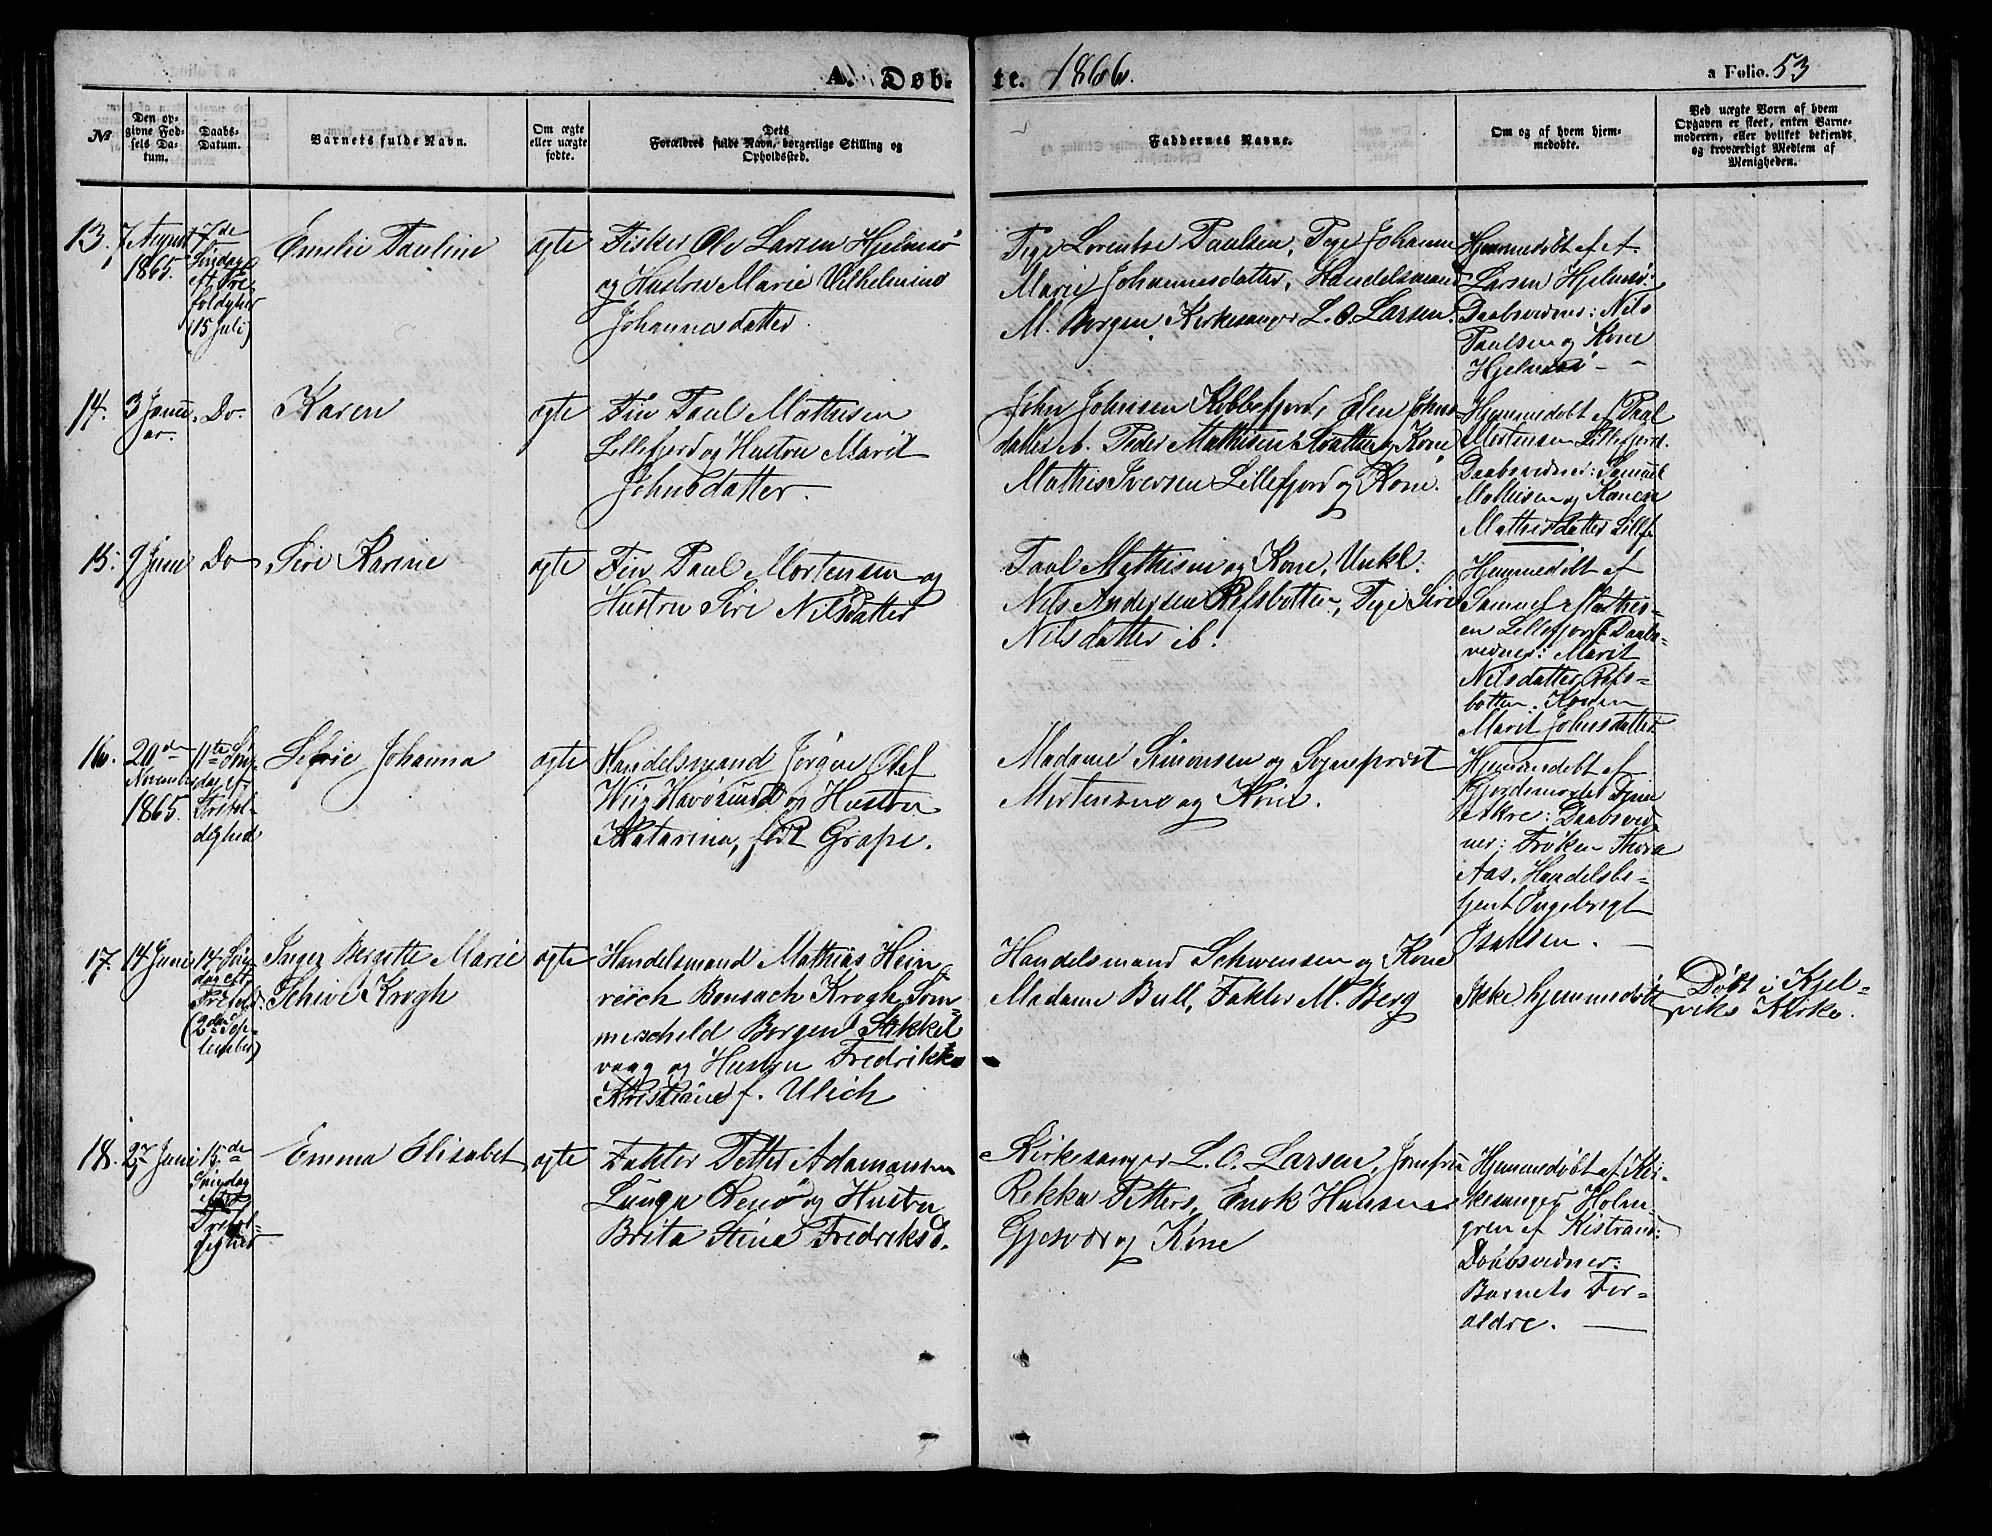 A. Døb-
te. 1866.
a Folio. 53
No
Den op-
givne Fød-
sels Da-
tum.
Daabs-
Datum.
Barnets fulde Navn.
Om ægte
eller uægte
fødte.
Dets
Forældres fulde Navn, borgerlige Stilling og
Opholdssted.
Faddernes Navne.
Om og af hvem hjem-
medøbte.
Ved uægte Børn af hvem
Opgaven er skeet, enten Barne-
moderen, eller hvilket bekjendt
og troværdigt Medlem af
Menigheden.
13.
7 August
1865.
7de
Søndag
eft. Tre-
foldighed
(15 Juli)
Emelie Pauline
ægte
Fisker Ole Larsen Hjelmsø
og Hustru Marie Vilhelmine
Johannesdatter.
Pige Lorentse Paulsen, Pige Johanne
Marie Johannesdatter, Handelsmand
M. Borgen, Kirkesanger L. O. Larsen.
Hjemmedøbt af A.
Larsen Hjelmsø:
Daabsvidner: Nils
Paulsen og Kone
Hjelmsø -
14.
3 Janu-
ar.
Do.
Karen
ægte
Fin Paul Mathisen
Lillefjord og Hustru Marit
Johnsdatter.
John Johnsen Kobbefjord, Elen Johns-
datter ib. Peder Mathisen Slaatten og Kone
Mathis Iversen Lillefjord og Kone.
Hjemmedøbt af Paul
Mortensen Lillefjord.
Daabsvidner: Samuel
Mathisen og Karen
Mathisdatter Lillefj
15.
9 Juni
Do
Siri Karine
ægte
Fin Paul Mortensen og
Hustru Siri Nilsdatter
Paul Mathisen og Kone, Unkl.
Nils Andersen Refsbotten, Pige Siri
Nilsdatter ib.
Hjemmedøbt af
Samuel Mathis-
en Lillefjord Daabs-
vidner: Marit
Nilsdatter Refs-
botten. Konen
Marit Johnsdatter
16.
20de
November
1865.
11te Søn-
dag ef.
Trefol-
dighed
Sefrie Johanna
ægte
Handelsmand Jørgen Olaf
Wiig Havøsund og Hustru
Katarina, født Grape.
Madame Simonsen og Sognepræst
Mortensen og Kone.
Hjemmedøbt af
Gjordemoder Fine
Akre: Daabsvid
ner: Frøken Thora
Aas, Handelsbe-
tjent Ingebrigt
Isaksen.
17.
14 Juni
14 Søn-
dag eft.
Trefold.
(2den Sep-
tember)
Inger Bergitte Marie
Schive Krogh
ægte
Handelsmand Mathias Hein
reich Bonsach Krogh Som
merscheld Borgen Stikkel
vaag og Hustru Fredrikke
Kristiane f. Ulich
Handelsmand Schwensen og Kone
Madame Bull, Faktor M. Berg
Ikke hjemmedøbt
Døbt i Kjel-
viks Kirke.
18.
27 Juni
15de
Søndag
eft
Trefol-
dighed
Emma Elisabet
ægte
Faktor Petter Adamansen
Lunga Renø og Hustru
Brita Stina Fredriksd.
Kirkesanger L. O. Larsen, Jomfru
Rekka Petters, Enok Hansen
Gjesvær og Kone
Hjemmedøbt af Kir-
kesanger Holm-
gren af Kistrand:
Daabsvidner:
Barnets For-
ældre.